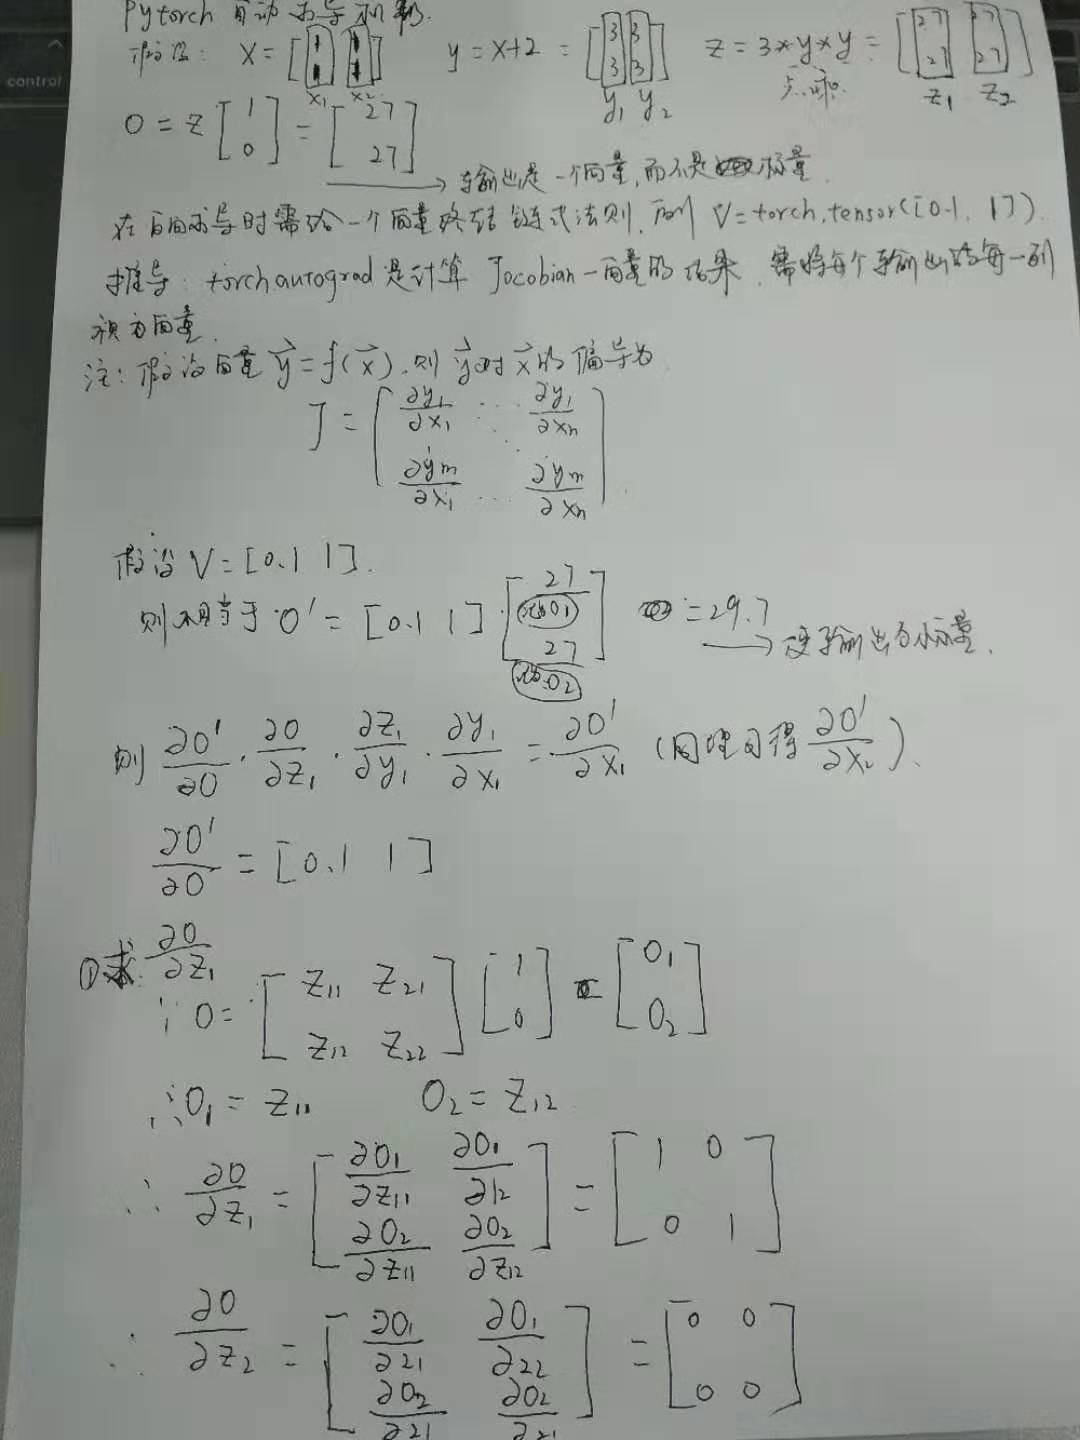 control
Pytorch 自动求导机制.
假设: X = [1 1 1 1] y = x+2 = [3 3 3 3] z = 3*y*y = [27 27 27 27]
x1 x2 y1 y2 点乘. z1 z2
O = z [1 0] = [27 27]
→ 输出是一个向量,而不是标量.
在反向求导时需给一个向量终结链式法则, 则 V = torch.tensor([0.1, 1])
推导: torch autograd 是计算 Jocobian-向量的结果, 需将每个输出的每一列
视为向量.
注: 假设向量 y⃗ = f(x⃗), 则 y⃗对x⃗的偏导为
J = [∂y1/∂x1 ... ∂y1/∂xn
∂ym/∂x1 ... ∂ym/∂xn]
假设 V = [0.1 1].
则相当于 O' = [0.1 1] · [27 27] = 29.7 → 使输出为标量.
则 ∂O'/∂O · ∂O/∂z1 · ∂z1/∂y1 · ∂y1/∂x1 = ∂O'/∂x1 (同理可得 ∂O'/∂x2).
∂O'/∂O = [0.1 1]
①求 ∂O/∂z1
∵ O = [z11 z21 z12 z22] [1 0] = [O1 O2]
∴ O1 = z11 O2 = z12
∴ ∂O/∂z1 = [∂O1/∂z11 ∂O1/∂12 ∂O2/∂z11 ∂O2/∂z12] = [1 0 0 1]
∴ ∂O/∂z2 = [∂O1/∂21 ∂O1/∂22 ∂O2/∂21 ∂O2/∂21] = [0 0 0 0]